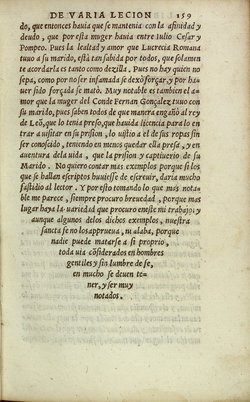 DE VARIA LECION 159
do, que entonces hauia que se mantenia con la afinidad y
deudo, que por esta muger hauia entre Iulio Cesar y
Pompeo. Pues la lealtad y amor que Lucrecia Romana
tuuo a su marido, està tan sabida por todos, que solamen
te acordarla es tanto como dezilla. Pues no hay quien no
sepa, como por no ser infamada se dexò forçar, y por hau
uer sido forçada se matò. Muy notable es tambien el a-
mor que la muger del Conde Fernan Gonçalez tuuo con
su marido, pues saben todos de que manera engañò al rey
de Leõ, que lo tenia preso, que hauida licencia para lo en
trar a visitar en su prision, lo vistio a el de sus ropas sin
ser conoscido, teniendo en menos quedar ella presa, y en
auentura dela vida, que la prision y captiuerio de su
Marido. No quiero contar mas exemplos porque si los
que se hallan escriptos huuiesse de escreuir, daria mucho
fastidio al lector. Y por esto tomando lo que mas nota
ble me parece, siempre procuro breuedad, porque mas
lugar haya la variedad que procuro eneste mi trabajo: y
aunque algunos delos dichos exemplos, nuestra
sancta fe no los apprueua, ni alaba, porque
nadie pueda matarse a si proprio,
toda via cõsiderados en hombres
gentiles y sin lumbre de fe,
en mucho se deuen te-
ner, y ser muy
notados.